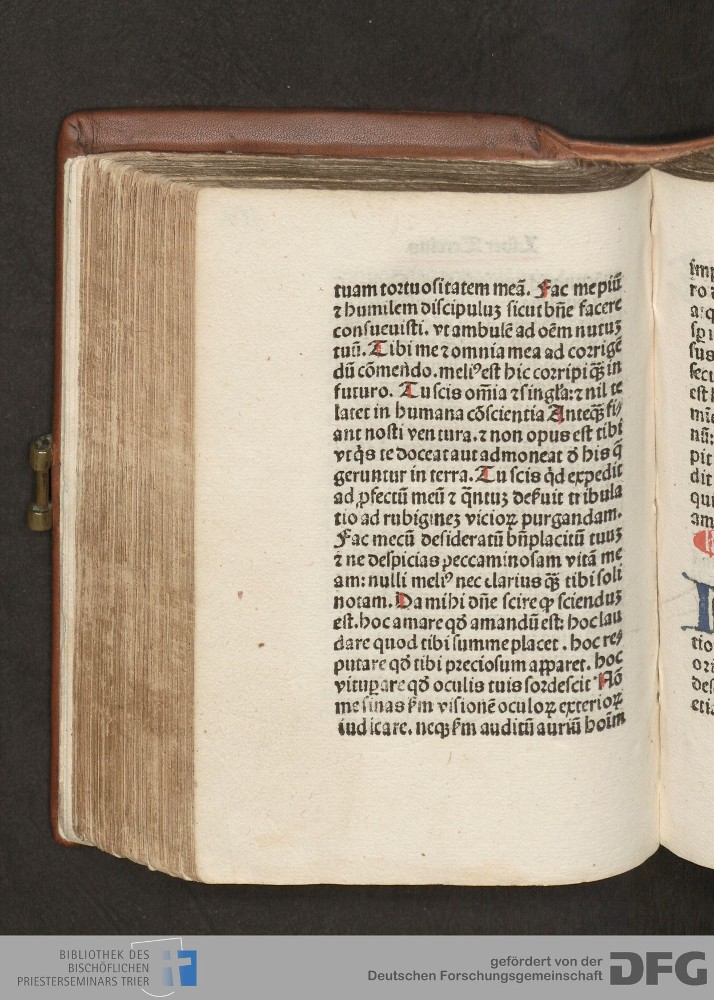 tuam tortuositatem meā. Fac me piū
⁊ humilem discipuluꝫ sicut bn̄e facere
consueuisti. vt ambulē ad oēm nutuꝫ
tuū. Tibi me ⁊ omnia mea ad corrigē
dū cōmendo. meliꝰ est hic corripi qꝫ̄ in
futuro. Tu scis om̄ia ⁊ singl'a: ⁊ nil te
latet in humana cōscientia Anteqꝫ̄ fi/
ant nosti ventura. ⁊ non opus est tibi
vt q̇s te doceat aut admoneat d̄ his q̄
geruntur in terra. Tu scis qd̄ expedit
ad ꝓfectū meū ⁊ q̄ntuꝫ deſuit tribula
tio ad rubigineꝫ vicioꝝ purgandam.
Fac mecū desideratū bn̄placitū tuuꝫ
⁊ ne despicias peccaminosam vitā me
am: nulli meliꝰ nec clarius qꝫ̄ tibi soli
notam. Da mihi dn̄e scire qͥ scienduꝫ
est. hoc amare qd̄ amandū est: hoc lau
dare quod tibi summe placet. hoc re/
putare qd̄ tibi preciosum apparet. hoc
vituꝑare qd̄ oculis tuis sordescit Nō
me sinas ẜm visionē oculoꝝ exterioꝝ
iudicare. neqꝫ ẜm auditū auriū hoīm
Liber Tercius
BIBLIOTHEK DES
BISCHÖFLICHEN
PRIESTERSEMINARS TRIER
gefördert von der
Deutschen Forschungsgemeinschaft
DFG